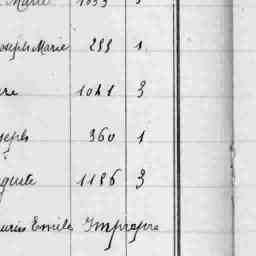 Marie 1033
oseph Marie 233 1
re 1041 3
seph 360 1
guste 1186 3
uris Emile Impropre